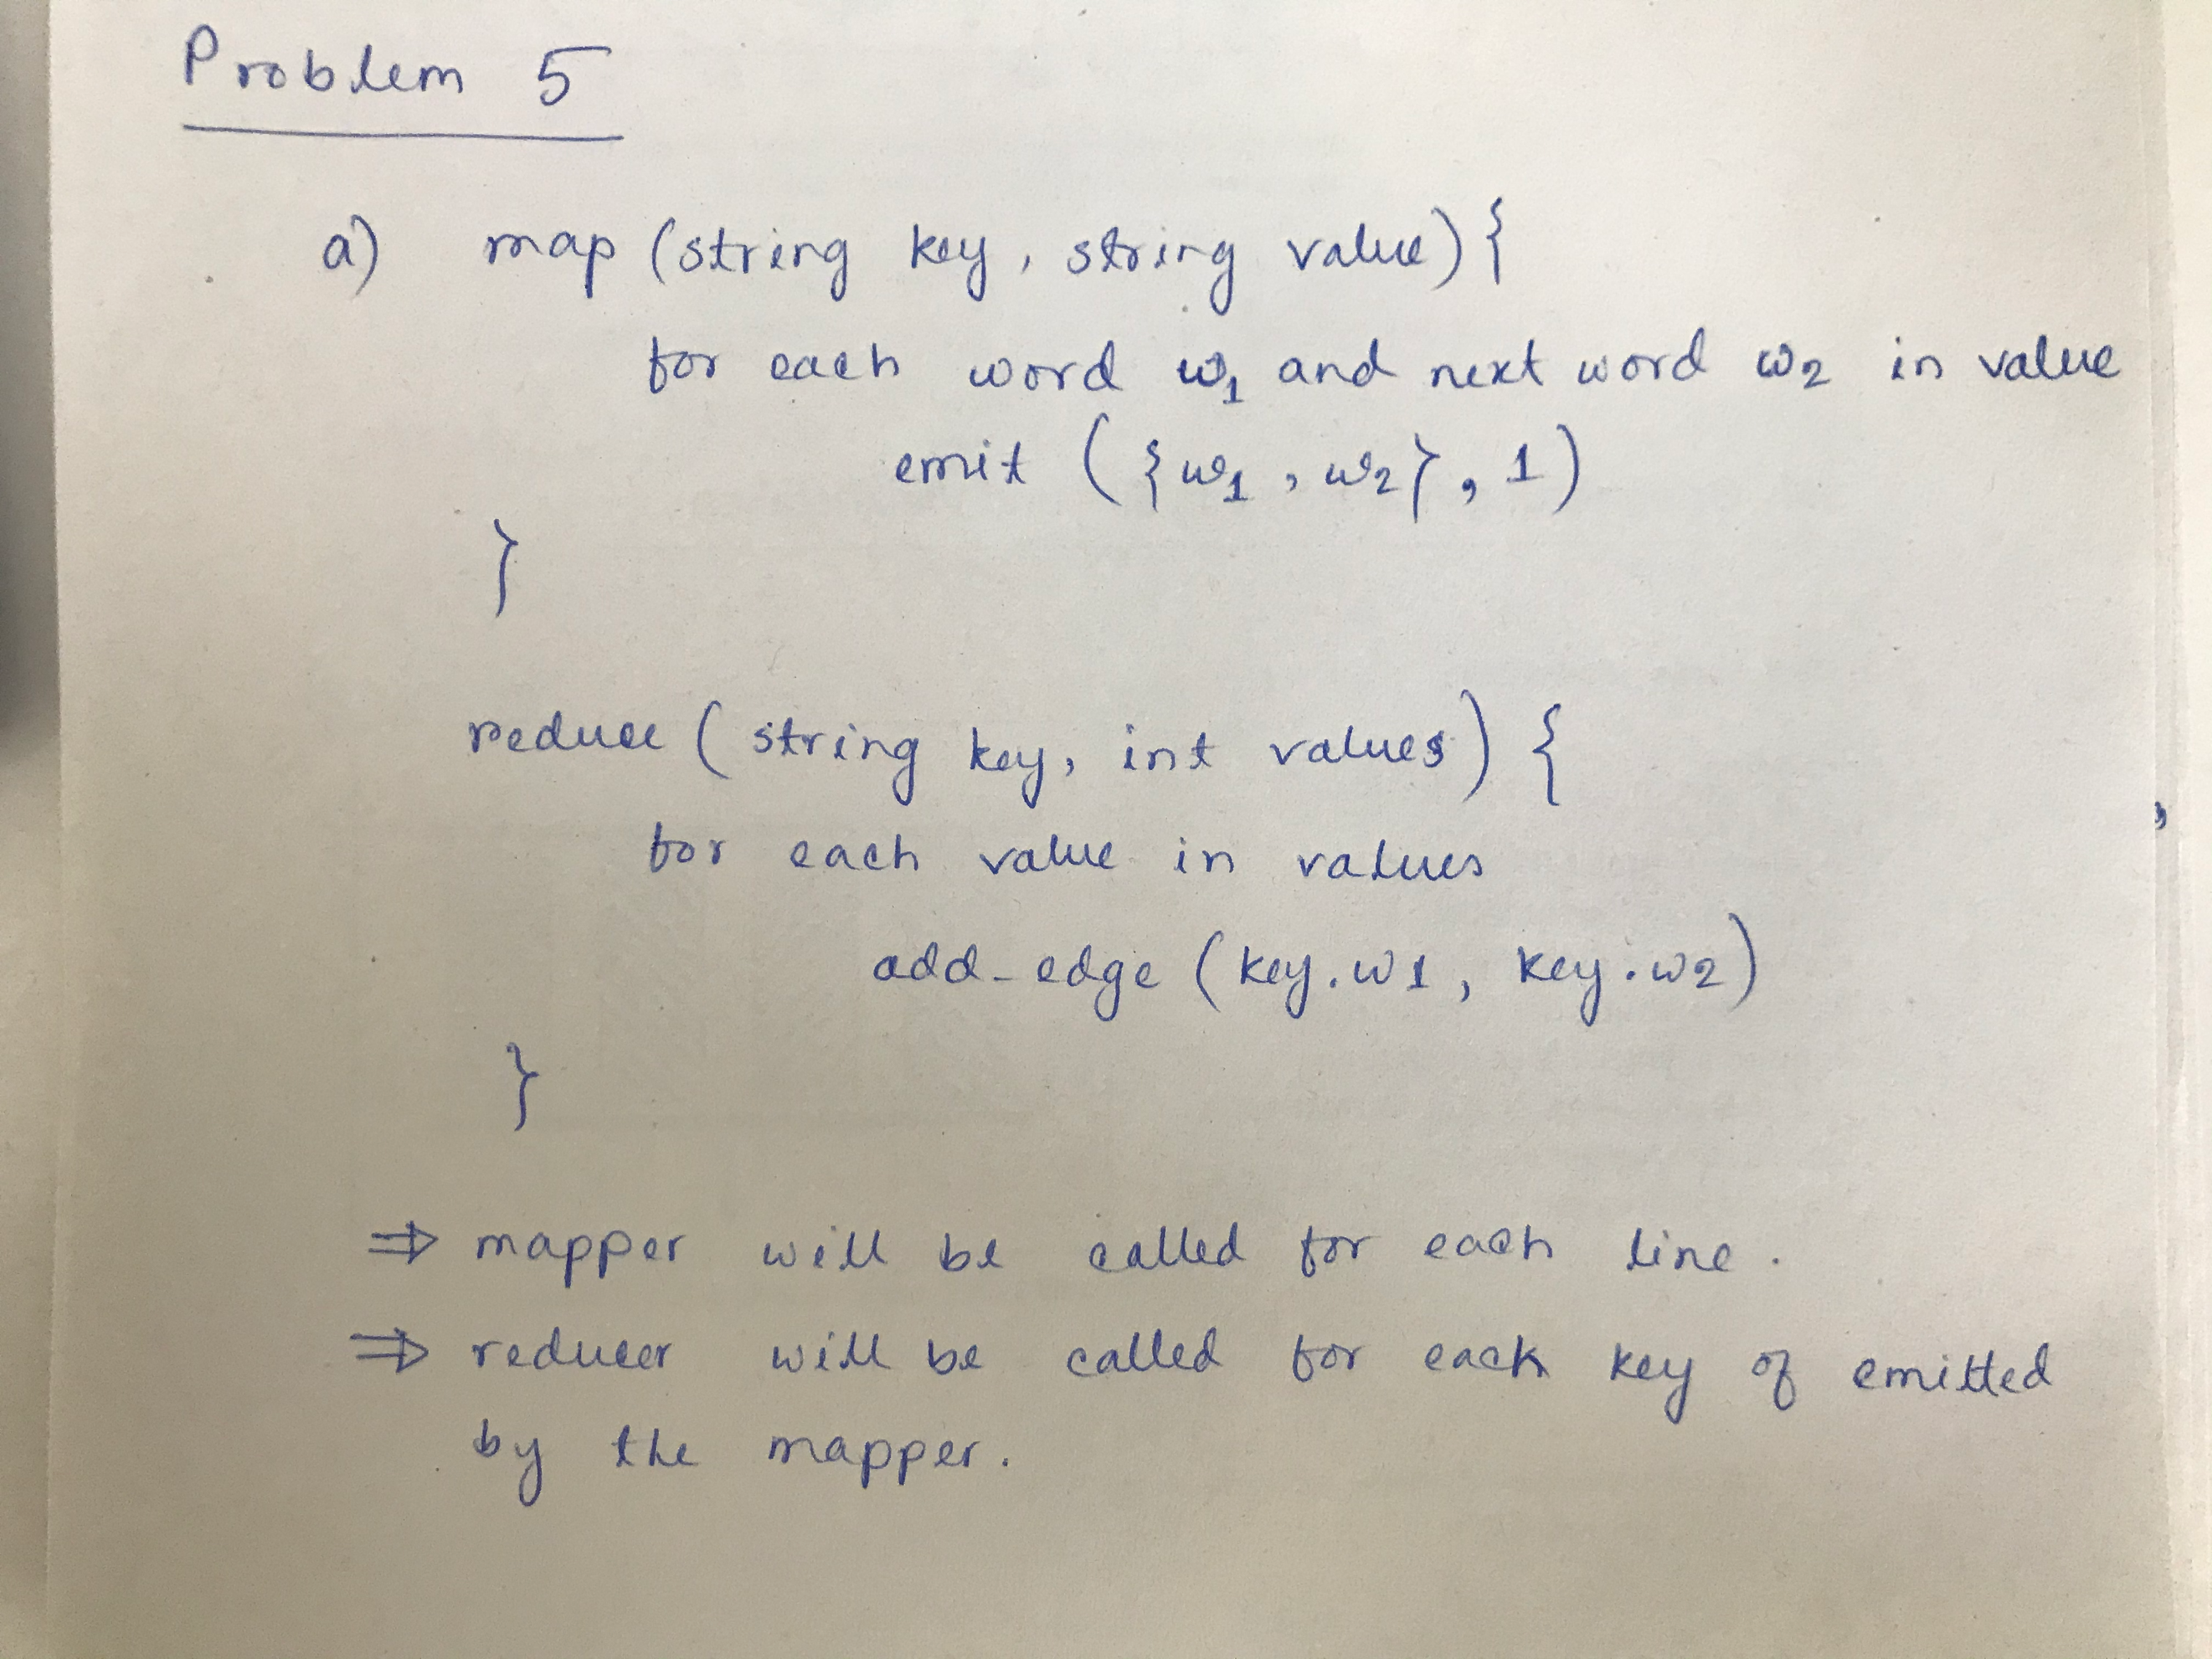 Problem 5
a) map (string key, string value) {
for each word w1 and next word w2 in value
emit ({w1, w2}, 1)
}
reduce (string key, int values) {
for each value in values
add-edge (key.w1, key.w2)
}
⇒ mapper will be called for each line.
⇒ reducer will be called for each key of emitted
by the mapper.